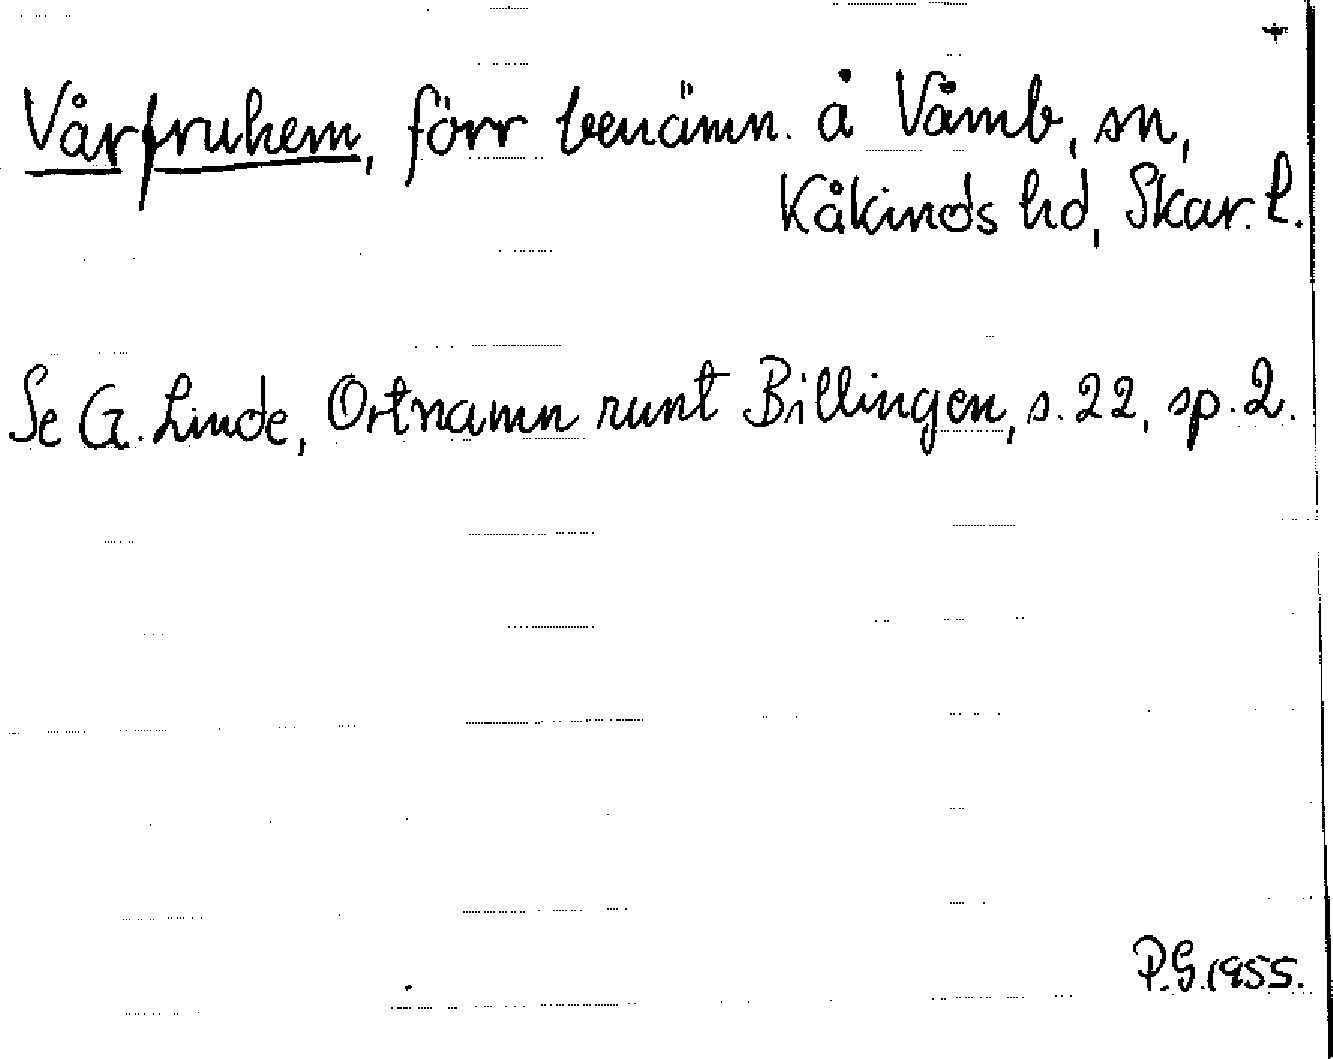 +
Vårfruhem, förr benämn. å Våmb, sn,
Kåkinds hd, Skar. l.
Se G. Linde, Ortnamn runt Billingen, s. 22, sp. 2.
P.G. 1955.